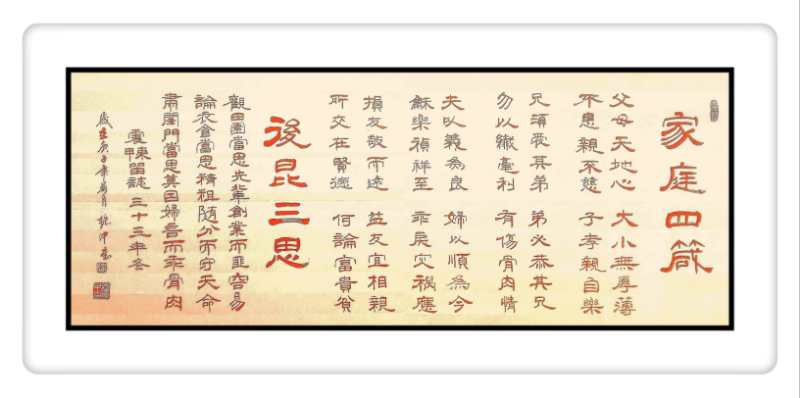 家庭四箴
父母天地心 大小無厚薄
不患親不慈 子孝親自樂
兄須愛其弟 弟必恭其兄
勿以纖毫利 有傷骨肉情
夫以義為良 婦以順為令
龢樂禎祥至 乖戾灾禍應
損友敬而遠 益友宜相親
所交在賢德 何論富貴貧
後昆三思
觀田園當思先輩創業而匪容易
論衣食當思精粗隨分而守天命
肅閨門當思莫因婦言而乖骨肉
留誌 三十三年冬
歲在庚子年